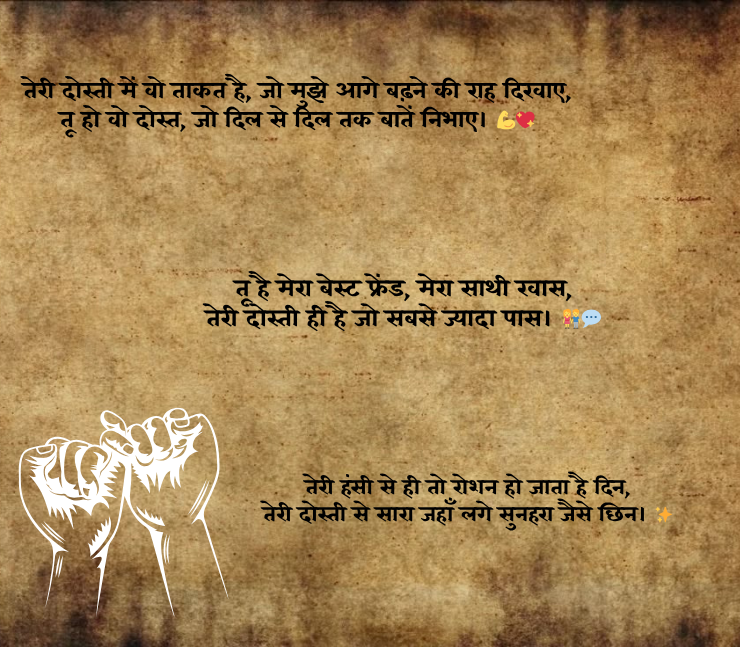 तेरी दोस्ती में वो ताकत है, जो मुझे आगे बढ़ने की राह दिखाए,
तू हो वो दोस्त, जो दिल से दिल तक बातें निभाए। 💪💖
तू है मेरा बेस्ट फ्रेंड, मेरा साथी खास,
तेरी दोस्ती ही है जो सबसे ज्यादा पास। 👫💬
तेरी हंसी से ही तो रोशन हो जाता है दिन,
तेरी दोस्ती से सारा जहाँ लगे सुनहरा जैसे छिन। ✨